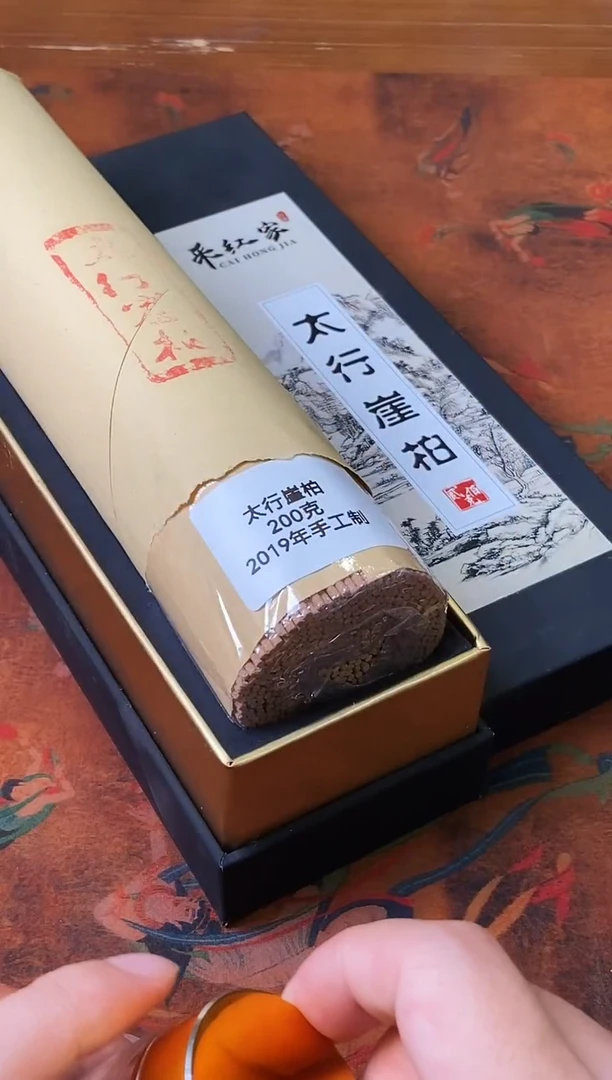 采红家
CAI HONG JIA
太行崖柏
太行崖柏
200克
2019年手工制